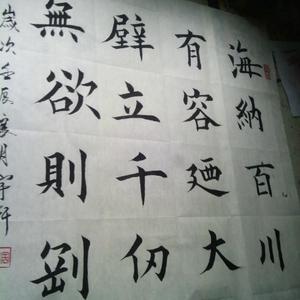 海納百川
有容廼大
壁立千仞
無欲則剛
歲次壬辰月